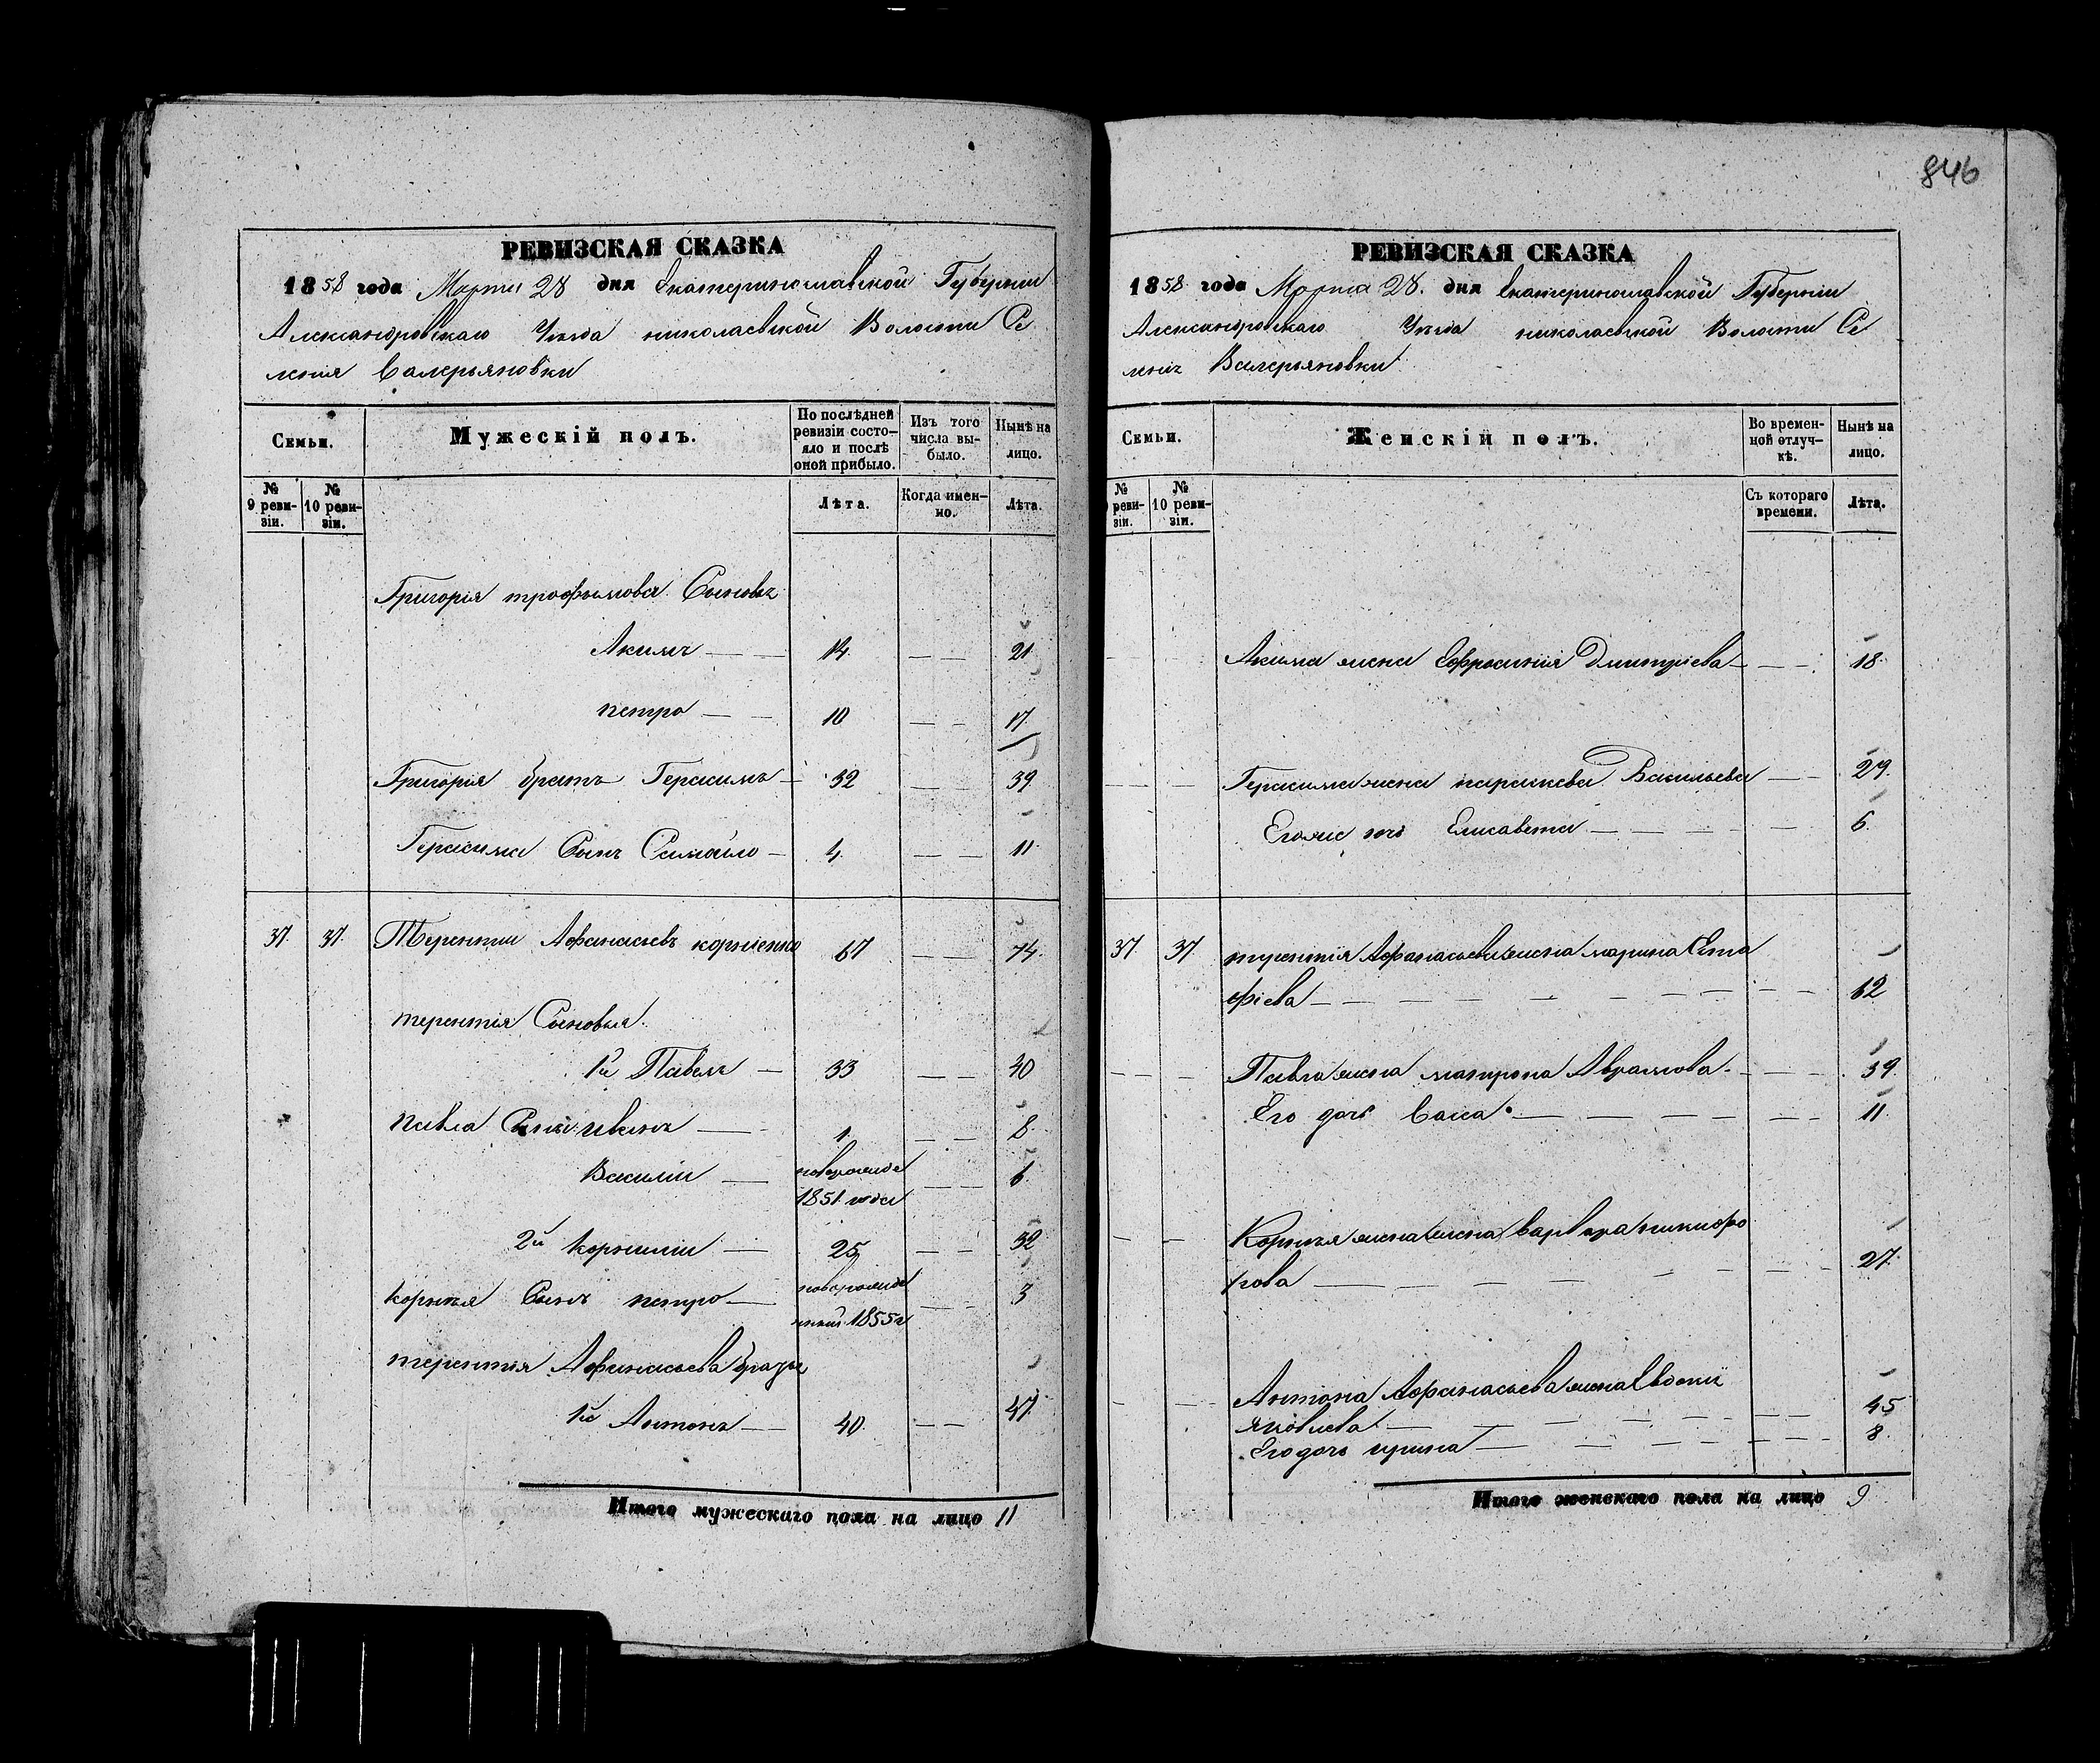 846
РЕВИЗСКАЯ СКАЗКА
1858 года Марта 28 дня Екатеринославской Губернии
Александровскаго Уезда николаевской Волости Се
ления Валерьяновки
Семьи.
Мужескій полъ.
По послѣдней ревизіи состояло и послѣ оной прибыло.
Изъ того числа выбыло.
Нынѣ на лицо.
№ 9 ревизіи.
№ 10 ревизіи.
Лѣта.
Когда именно.
Лѣта.
Григорія трофимова Сыновья
Акимъ — 14 — — 21
петро — 10 — — 17
Григорія братъ Герасимъ — 32 — 39
Герасима Сынъ Самойло — 4 — — 11
37. 37. Терентии Афанасьевъ корниенко 67 — — 74.
терентия Сыновья.
1й Павелъ — 33 — — 40
павла Сыны: иванъ — 1 — — 8.
Василии — новорожде — — 6.
1851 года
2й корнилии — 25 — — 32
корнея Сынъ петро — новорожде — — 3
нный 1855 г
терентия Афанасьева братья
1й Антонъ — 40. — — 47.
Итого мужескаго пола на лицо 11
РЕВИЗСКАЯ СКАЗКА
1858 года Марта 28. дня Екатеринославской Губернии
Александровскаго Уезда николаевской Волости Се
ления Валерьяновки
Семьи.
Женскій полъ.
Во временной отлучкѣ.
Нынѣ на лицо.
№ 9 ревизіи.
№ 10 ревизіи.
Съ котораго времени.
Лѣта.
Акима жена Ефросиния Дмитріева — — — 18.
Герасима жена параскева Васильева — — 29.
Егоже дочь Елисавета — — — 6.
37. 37. терентия Афанасьева жена марина Ста
фіева — — — 62
Павла жена матрона Аврамова — — — 39.
Его дочь Васса — — — 11.
Корнея жена варвара никифо
рова — — — 27.
Антона Афанасьева жена Евдокия
яковлева — — — 45
Его дочь ирина — — — 8.
Итого женскаго пола на лицо 9